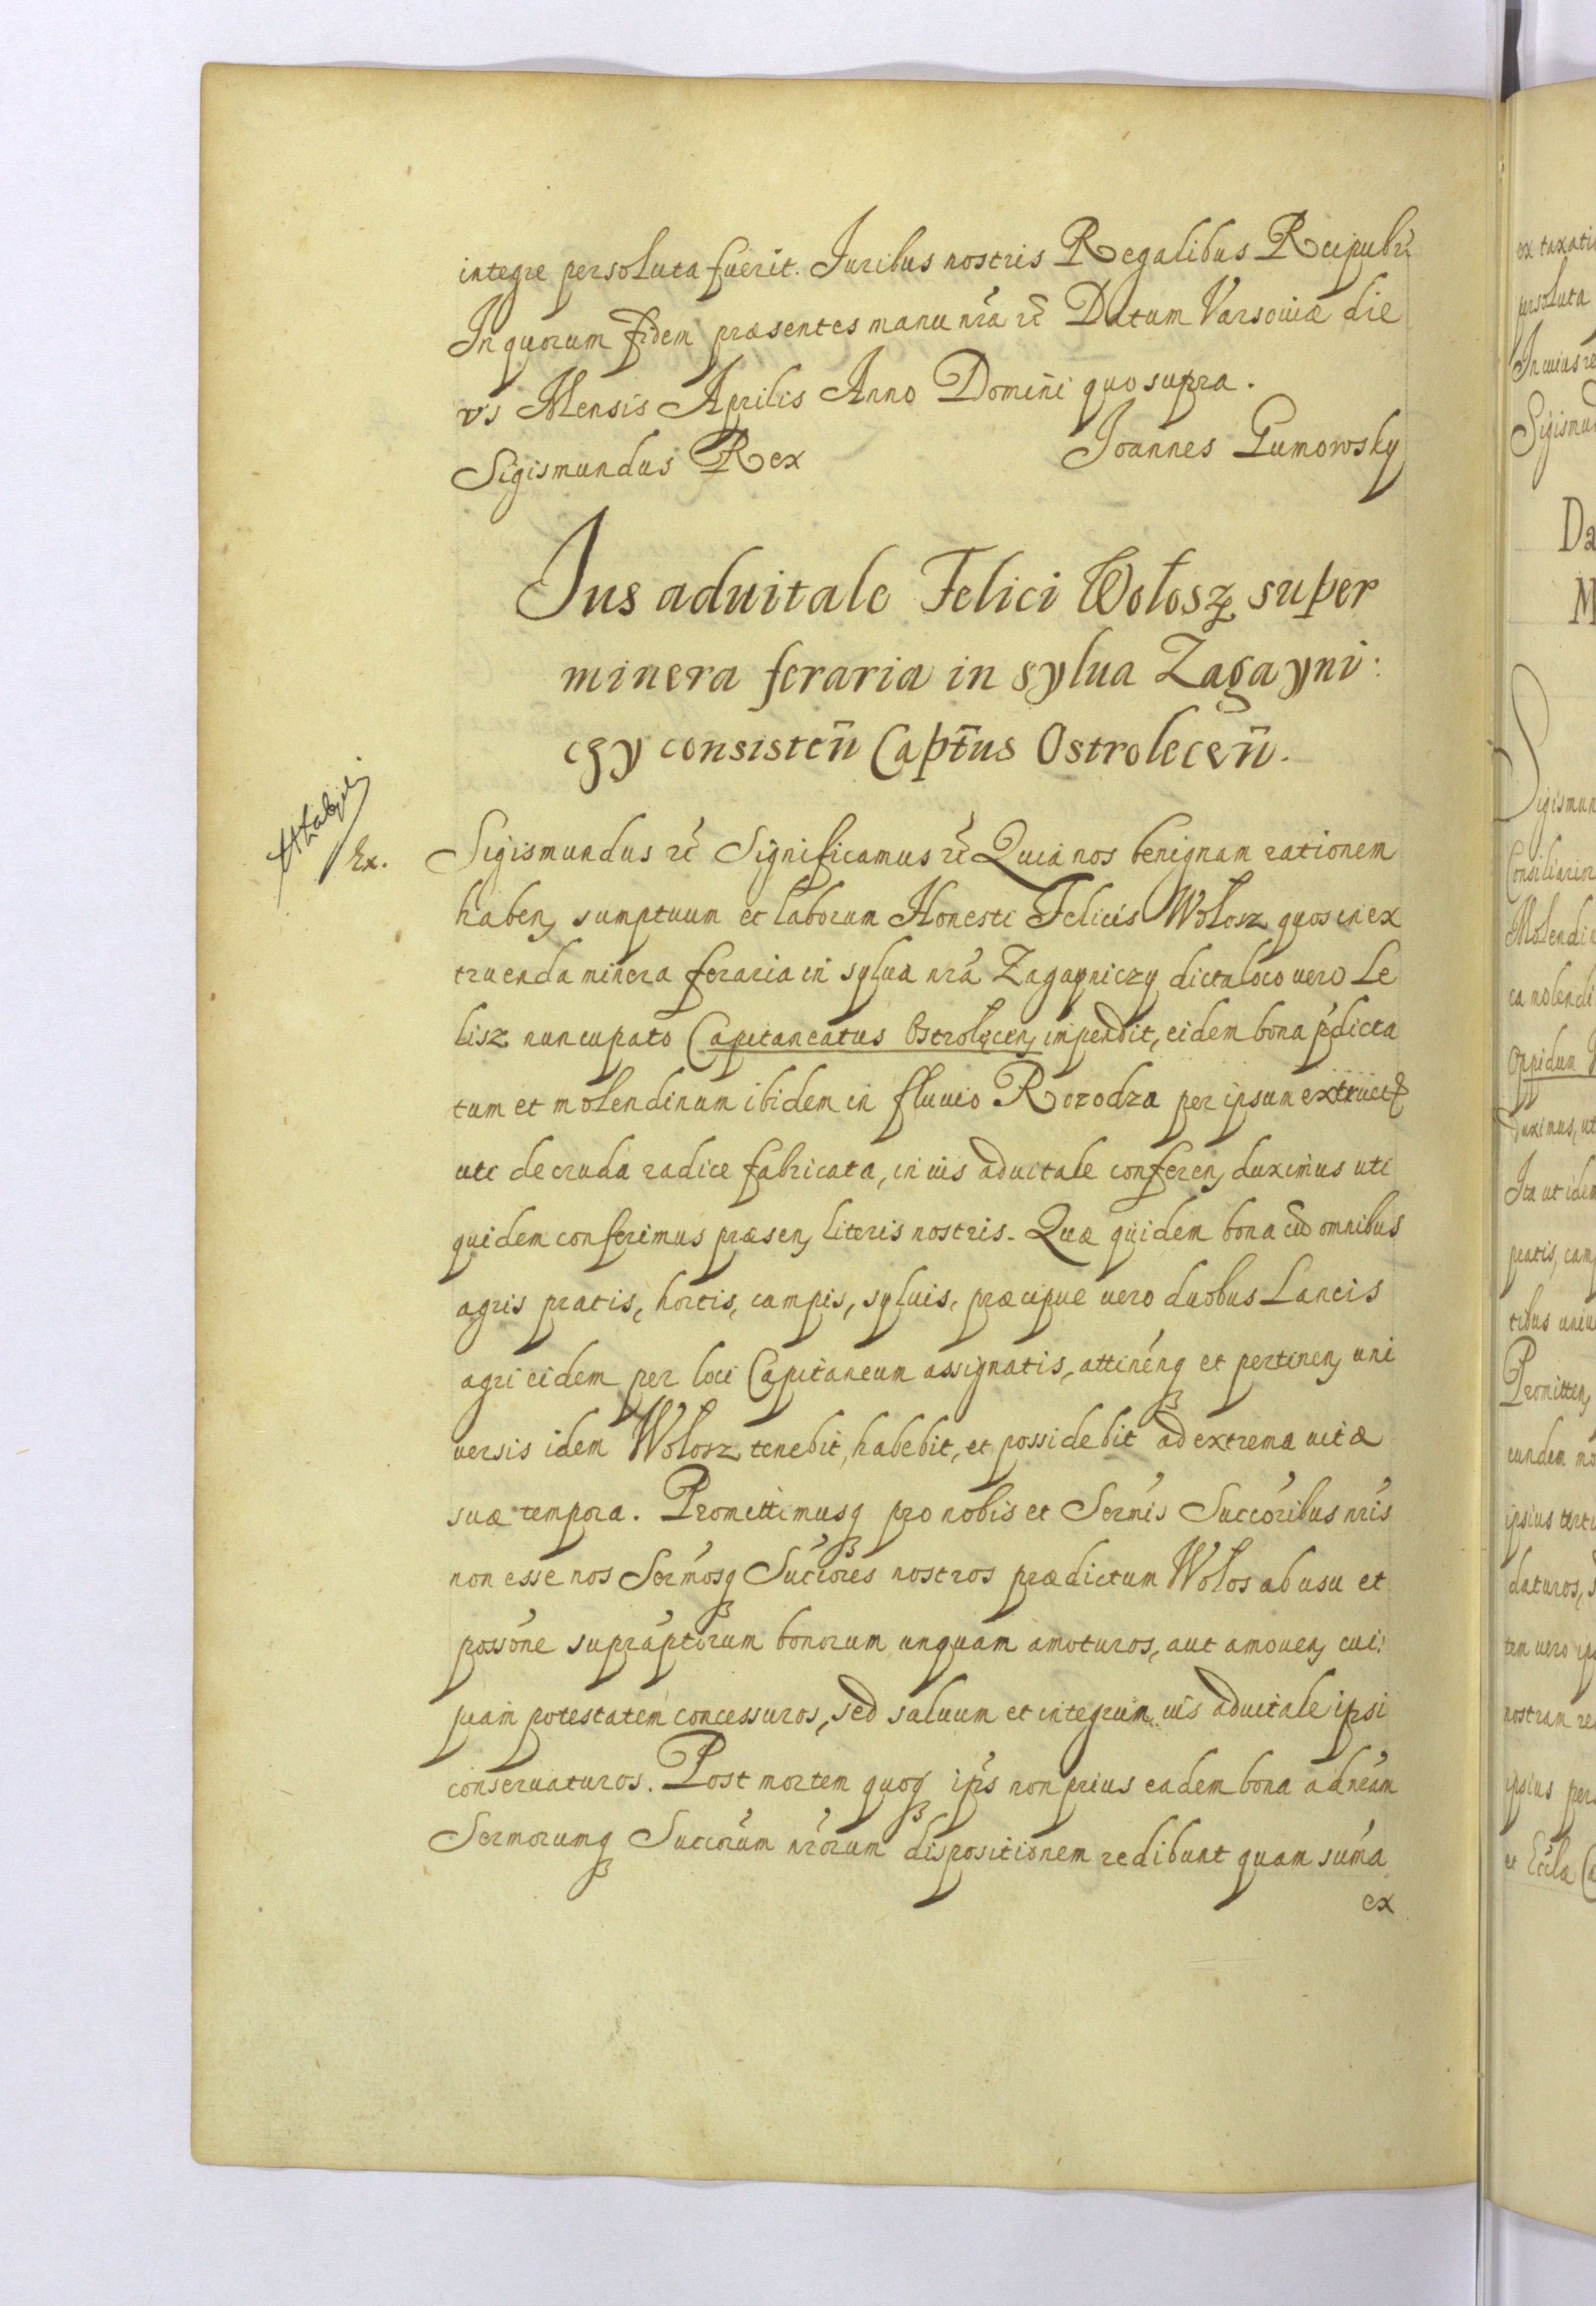 integre persoluta fuerit. Iuribus nostris Regalibus Reipubl:
In quorum fidem præsentes manu nr̃a rc̃ Datum Varsouiæ die
vi Mensis Aprilis Anno Domini quo supra.
Sigismundus Rex Joannes Gumowsky
Ius aduitale Felici Wołosz super
minera feraria in sylua Zagayni:
czy consisten̄ Captūs Ostrolecen̄.
Ex. Sigismundus rc̃ Significamus rc̃ Quia nos benignam rationem
haben, sumptuum et laborum Honesti Felicis Wołosz quos in ex
truenda minera feraria in sylua nr̃a Zagayniczy dicta loco vero Le
lisz nuncupato Capitaneatus Ostrolęcen, impendit, eidem bona p̃dicta
tum et molendinum ibidem in fluuio Rozodza per ipsum extruct
uti de cruda radice fabricata, in ius aduitale conferen, duximus uti
quidem conferimus præsen, literis nostris. Quæ quidem bona cū omnibus
agris pratis, hortis, campis, syluis, præcipue uero duobus Laneis
agri eidem per loci Capitaneum assignatis, attinénq et pertinen, uni
versis idem Wołosz tenebit, habebit, et possidebit ad extrema uitæ
suæ tempora. Promittimusq pro nobis et Sermis Succoribus nr̃is
non esse nos Sermosq Succores nostros prædictum Wołos ab usu et
possóne supraptorum bonorum unquam amoturos, aut amouen, cui:
quam potestatem concessuros, sed saluum et integrum ius aduitale ipsi
conseruaturos. Post mortem quoq ipís non prius eadem bona ad nr̃am
Sermorumq Succorum nr̃orum dispositionem redibunt quam sum̃a
ex